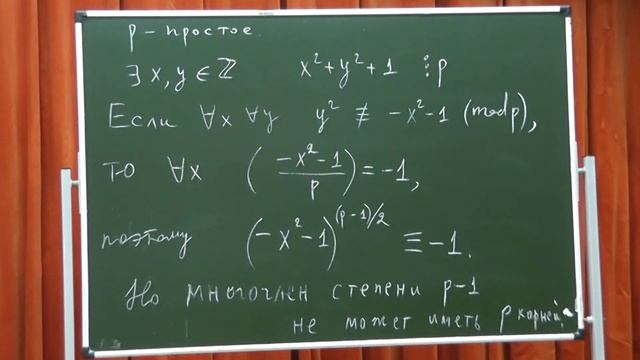 p – простое.
∃ x, y ∈ ℤ x² + y² + 1 ⋮ p
Если ∀x ∀y y² ≢ −x² −1 (mod p),
то ∀x (−x² −1 / p) = −1,
поэтому (−x² −1)^((p−1)/2) ≡ −1.
Но многочлен степени p−1
не может иметь p корней.